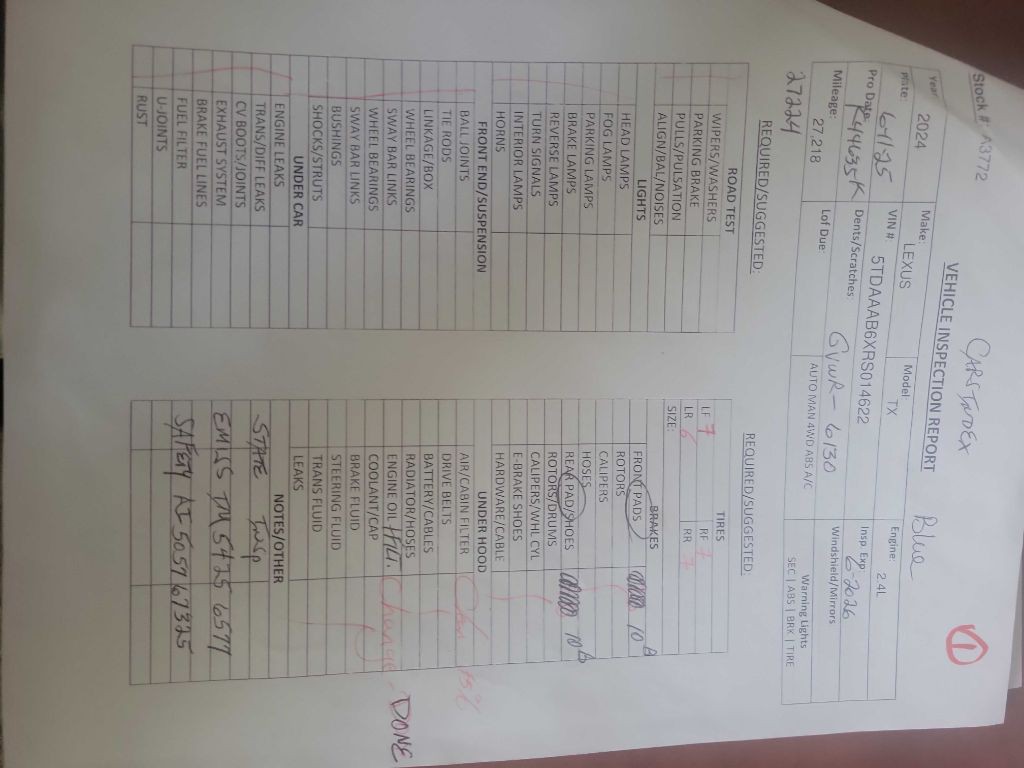 CARS INDEX Blue 1
Stock #: A3772
VEHICLE INSPECTION REPORT
Year: 2024 Make: LEXUS Model: TX Engine: 2.4L
Plate: VIN #: 5TDAAAB6XRS014622 Insp Exp 6-2026
Pro Date: 6-11-25 Dents/Scratches: Windshield/Mirrors
Mileage: 27,218 Lof Due: GVWR - 6130 AUTO MAN 4WD ABS A/C Warning Lights
SEC | ABS | BRK | TIRE
27224
REQUIRED/SUGGESTED:
ROAD TEST
WIPERS/WASHERS
PARKING BRAKE
PULLS/PULSATION
ALIGN/BAL/NOISES
LIGHTS
HEAD LAMPS
FOG LAMPS
PARKING LAMPS
BRAKE LAMPS
REVERSE LAMPS
TURN SIGNALS
INTERIOR LAMPS
HORNS
FRONT END/SUSPENSION
BALL JOINTS
TIE RODS
LINKAGE/BOX
WHEEL BEARINGS
SWAY BAR LINKS
WHEEL BEARINGS
SWAY BAR LINKS
BUSHINGS
SHOCKS/STRUTS
UNDER CAR
ENGINE LEAKS
TRANS/DIFF LEAKS
CV BOOTS/JOINTS
EXHAUST SYSTEM
BRAKE FUEL LINES
FUEL FILTER
U-JOINTS
RUST
REQUIRED/SUGGESTED:
TIRES
LF 7 RF 7
LR 6 RR 7
SIZE:
BRAKES
FRONT PADS 10
ROTORS
CALIPERS
HOSES
REAR PADS/SHOES 10
ROTORS/DRUMS
CALIPERS/WHL CYL
E-BRAKE SHOES
HARDWARE/CABLE
UNDER HOOD
AIR/CABIN FILTER
DRIVE BELTS
BATTERY/CABLES
RADIATOR/HOSES
ENGINE OIL + FILT. Change - DONE
COOLANT/CAP
BRAKE FLUID
STEERING FLUID
TRANS FLUID
LEAKS
NOTES/OTHER
STATE INSP
EMIS
SAFETY AI 505767325